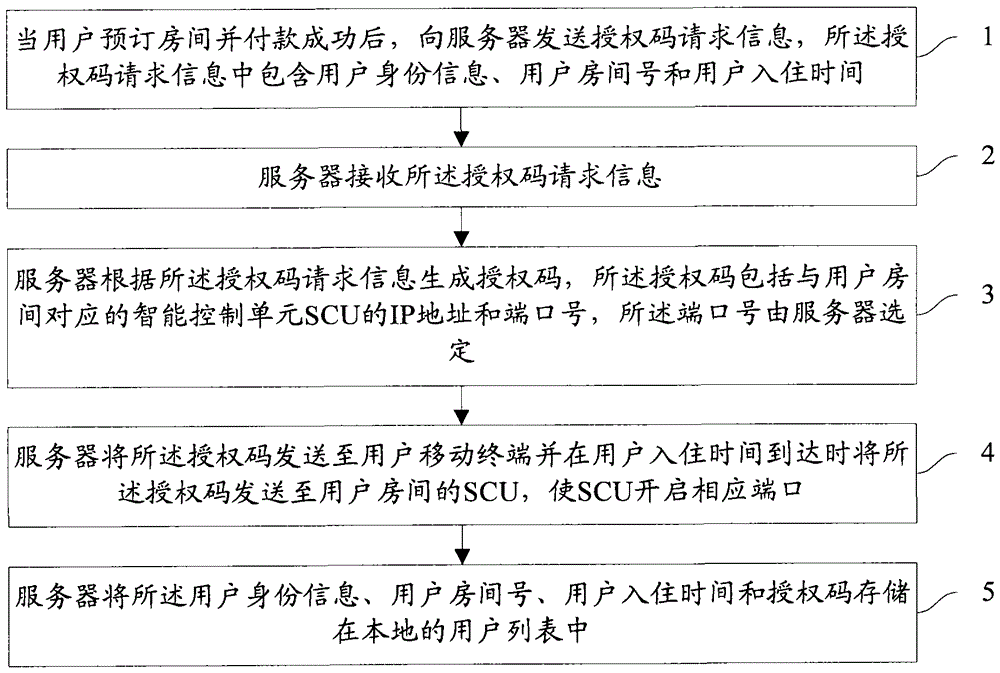 当用户预订房间并付款成功后，向服务器发送授权码请求信息，所述授
权码请求信息中包含用户身份信息、用户房间号和用户入住时间
1
服务器接收所述授权码请求信息
2
服务器根据所述授权码请求信息生成授权码，所述授权码包括与用户房
间对应的智能控制单元SCU的IP地址和端口号，所述端口号由服务器选
定
3
服务器将所述授权码发送至用户移动终端并在用户入住时间到达时将所
述授权码发送至用户房间的SCU，使SCU开启相应端口
4
服务器将所述用户身份信息、用户房间号、用户入住时间和授权码存储
在本地的用户列表中
5